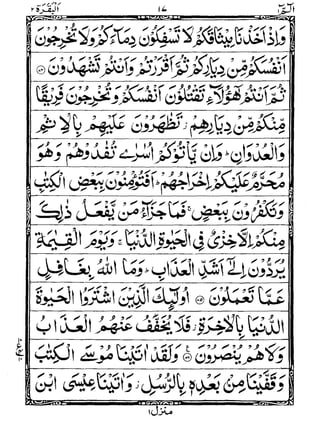 الٓمّٓ ۱۷ البقرة ۲
وَاِذْ اَخَذْنَا مِيْثَاقَكُمْ لَا تَسْفِكُوْنَ دِمَآءَكُمْ وَلَا تُخْرِجُوْنَ
اَنْفُسَكُمْ مِّنْ دِيَارِكُمْ ثُمَّ اَقْرَرْتُمْ وَاَنْتُمْ تَشْهَدُوْنَ ۸۴
ثُمَّ اَنْتُمْ هٰٓؤُلَآءِ تَقْتُلُوْنَ اَنْفُسَكُمْ وَتُخْرِجُوْنَ فَرِيْقًا
مِّنْكُمْ مِّنْ دِيَارِهِمْ تَظٰهَرُوْنَ عَلَيْهِمْ بِالْاِثْمِ
وَالْعُدْوَانِ وَاِنْ يَّاْتُوْكُمْ اُسٰرٰى تُفٰدُوْهُمْ وَهُوَ
مُحَرَّمٌ عَلَيْكُمْ اِخْرَاجُهُمْ اَفَتُؤْمِنُوْنَ بِبَعْضِ الْكِتٰبِ
وَتَكْفُرُوْنَ بِبَعْضٍ فَمَا جَزَآءُ مَنْ يَّفْعَلُ ذٰلِكَ
مِنْكُمْ اِلَّا خِزْىٌ فِى الْحَيٰوةِ الدُّنْيَا وَيَوْمَ الْقِيٰمَةِ
يُرَدُّوْنَ اِلٰٓى اَشَدِّ الْعَذَابِ وَمَا اللّٰهُ بِغَافِلٍ
عَمَّا تَعْمَلُوْنَ ۸۵ اُولٰٓئِكَ الَّذِيْنَ اشْتَرَوُا الْحَيٰوةَ
الدُّنْيَا بِالْاٰخِرَةِ فَلَا يُخَفَّفُ عَنْهُمُ الْعَذَابُ
وَلَا هُمْ يُنْصَرُوْنَ ۸۶ وَلَقَدْ اٰتَيْنَا مُوْسَى الْكِتٰبَ
وَقَفَّيْنَا مِنْۢ بَعْدِهٖ بِالرُّسُلِ وَاٰتَيْنَا عِيْسَى ابْنَ
منزل ۱